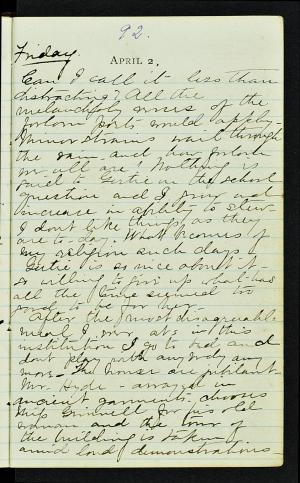 92.
Friday.
APRIL 2.
Can I call it less than
distracting? All the
melancholy verses of the
forlorn poets would apply.
Minor strains wail through
the rain - and how forlorn
we all are. Nothing is
said to Gertie in the school
question and I grow and
increase in ability to stew.
I don't like things as they
are to-day. What becomes of
my religion such days?
Gertie is so nice about it -
so willing to give up what has
all the time seemed too
good to be for her.
After the most disagreeable
meal I ever ate in this
institution I go to bed and
don't play with anybody any
more. The house are jubilant.
Mr. Hyde - arrayed in
ancient garments, chooses
Miss Grinnell for his old
woman and the tour of
the building is taken
amid loud demonstrations -